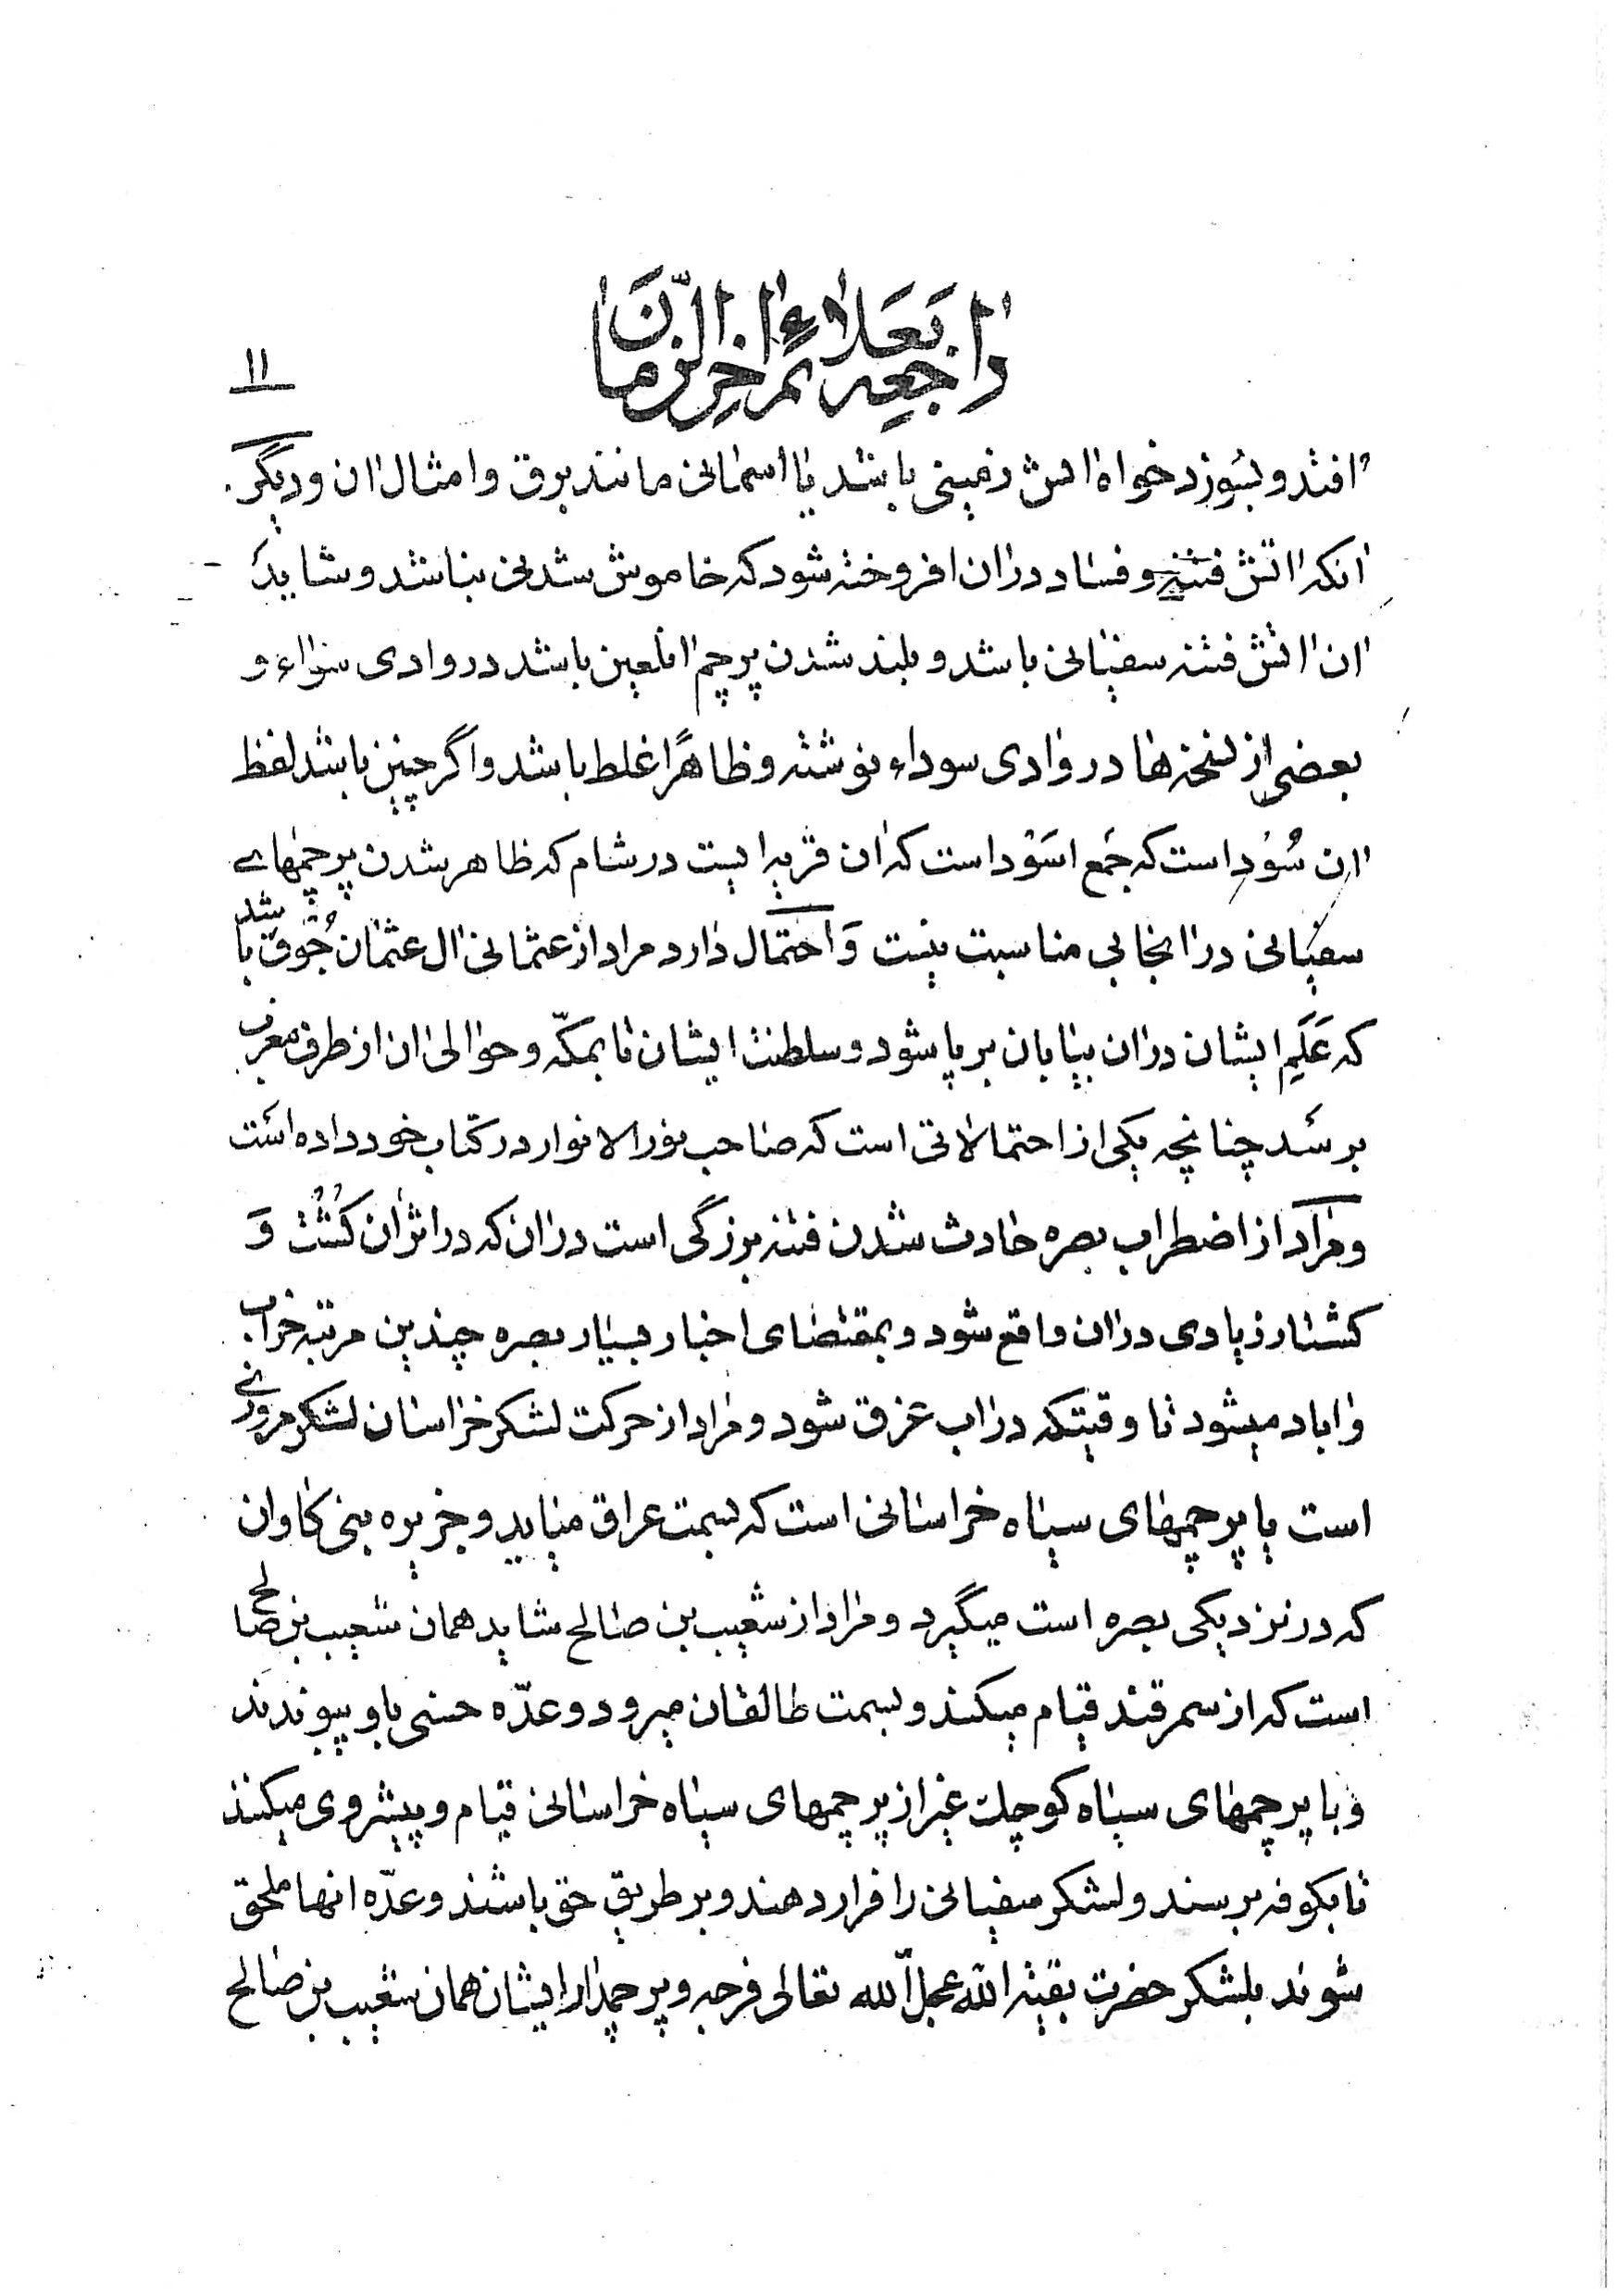 راجعه بعلائم اخر الزّمان
۱۱
افتد و بسوزد خواه اتش زمینی باشد یا اسمانی مانند برق و امثال ان و دیگر
انکه اتش فتنه و فساد دران افروخته شود که خاموش شدنی نباشد و شاید
ان اتش فتنه سفیانی باشد و بلند شدن پرچم انلعین باشد در وادی سواء و
بعضی از نسخه‌ها در وادی سوداء نوشته و ظاهرًا غلط باشد و اگر چنین باشد لفظ
ان سُوَد است که جمع اسوَد است که ان قریه ایست در شام که ظاهر شدن پرچمهای
سفیانی در انجا بی مناسبت نیست وَ احتمال دارد مراد از عثمانی ال عثمان جُوق باشد
که عَلَم ایشان دران بیابان بر پا شود و سلطنت ایشان تا بمکّه و حوالی ان از طرف مغرب
برسد چنانچه یکی از احتمالاتی است که صاحب نور الانوار در کتاب خود داده است
و مراد از اضطراب بصره حادث شدن فتنه بزرگی است دران که در اثر ان کُشت وَ
کشتار زیادی دران واقع شود و بمقتضای اخبار بسیار بصره چندین مرتبه خراب
و اباد میشود تا وقتیکه دراب غرق شود و مراد از حرکت لشکر خراسان لشکر مروزی
است یا پرچمهای سیاه خراسانی است که بسمت عراق میاید و جزیره بنی کاوان
که در نزدیکی بصره است میگیرد و مراد از شعیب بن صالح شاید همان شعیب بن صالح
است که از سمرقند قیام میکند و بسمت طالقان میرود و عدّه حسنی باو بپیوندند
و با پرچمهای سیاه کوچک غیر از پرچمهای سیاه خراسانی قیام و پیشروی میکنند
تا بکوفه برسند و لشکر سفیانی را فرار دهند و بر طریق حق باشند و عدّه انها ملحق
شوند بلشکر حضرت بقیة الله عجل الله تعالی فرجه و پرچمدار ایشان همان شعیب بن صالح